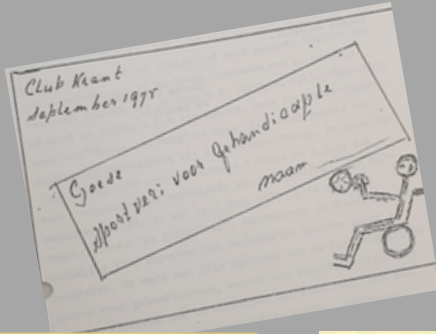 Club Krant
September 1975
Goede
sport ver: voor gehandicapte
naam